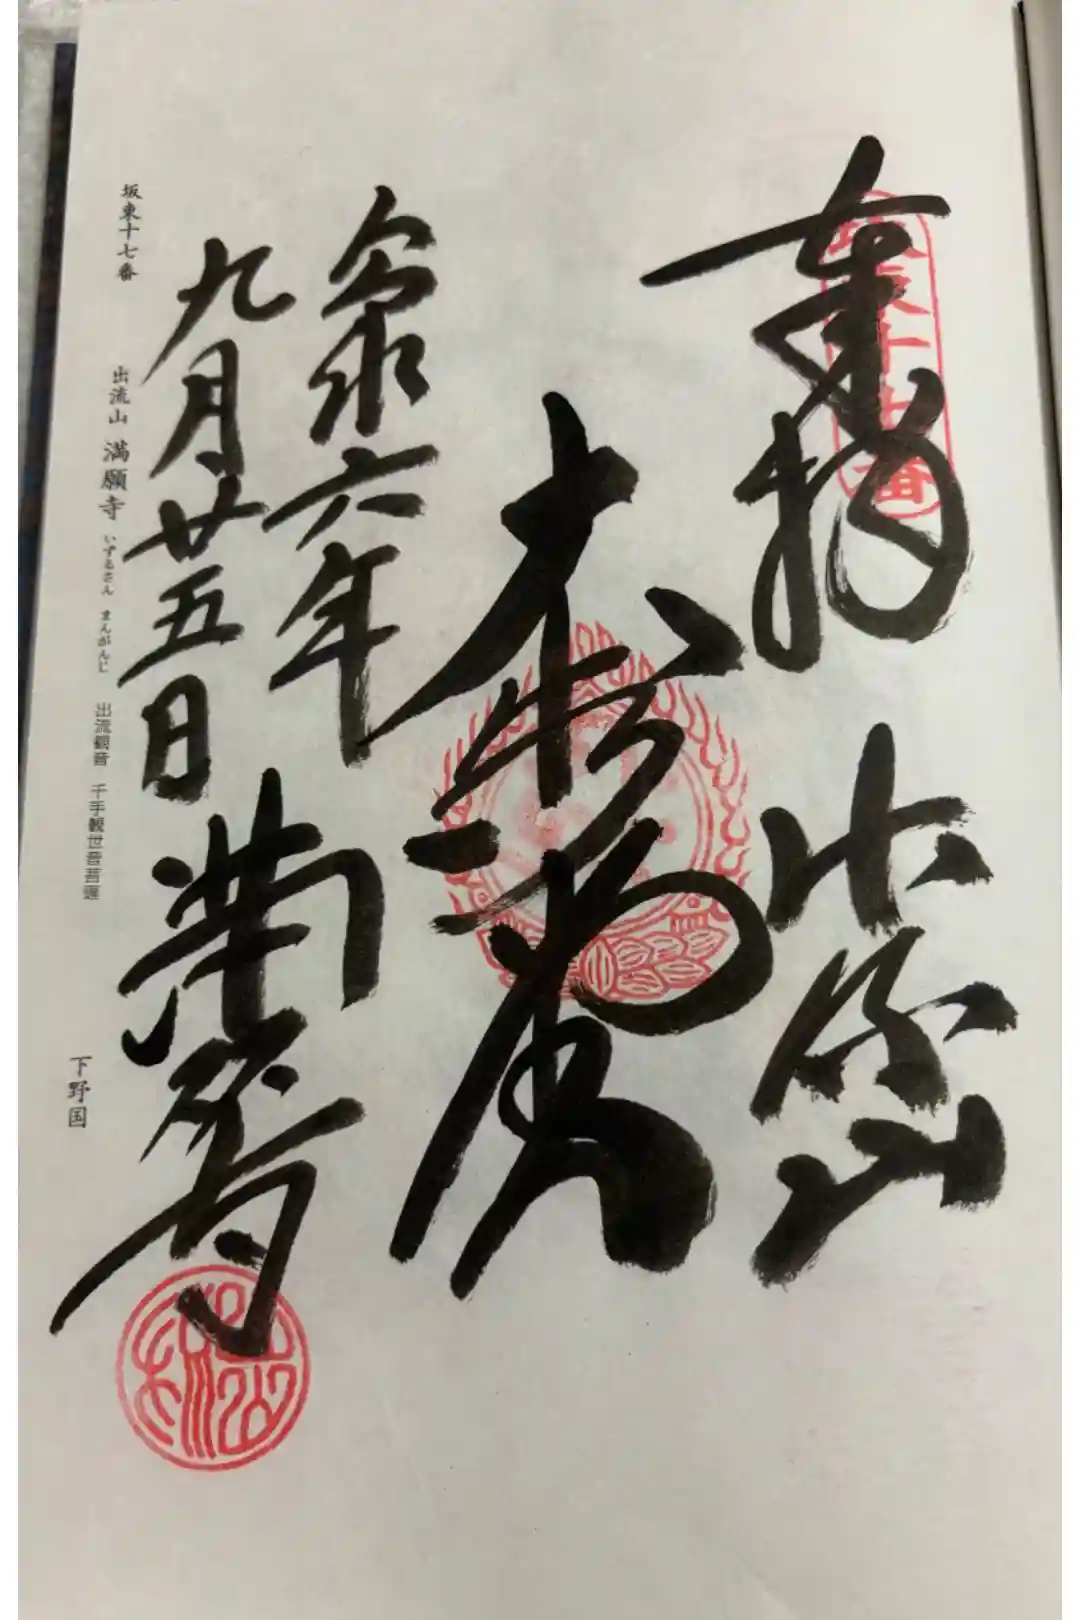 奉拝
出流山
令和六年
九月廿五日
満願寺
坂東十七番
坂東十七番
出流山 満願寺 いずるさん まんがんじ 出流観音 千手観世音菩薩
下野国